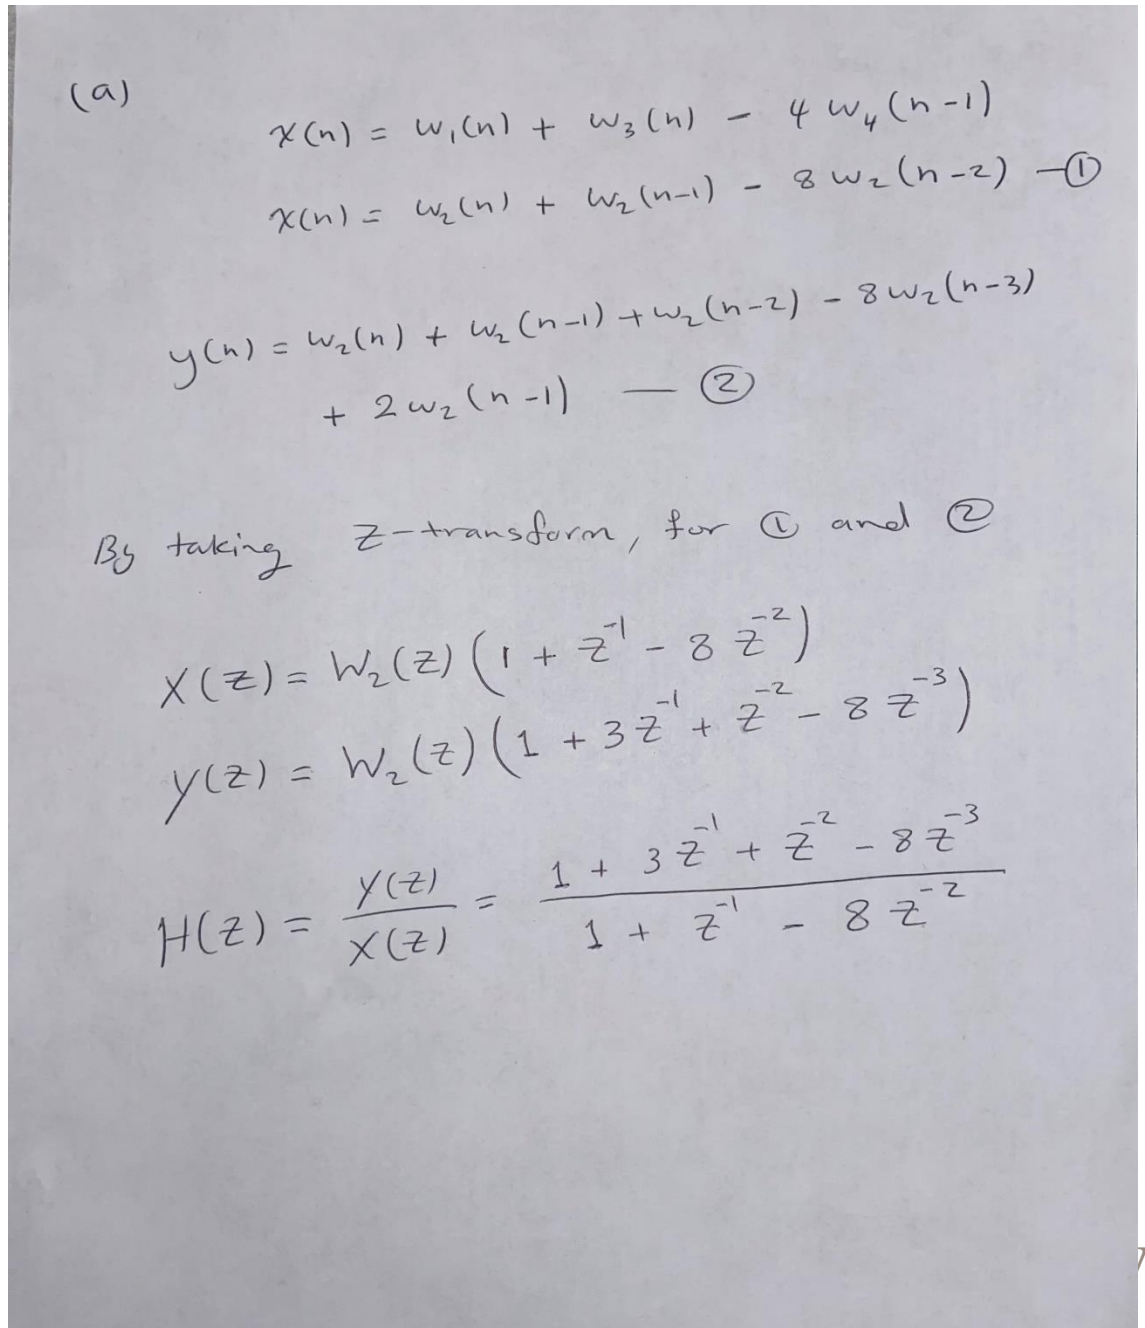 (a)
x(n) = w₁(n) + w₃(n) - 4 w₄(n-1)
x(n) = w₂(n) + w₂(n-1) - 8 w₂(n-2) —①
y(n) = w₂(n) + w₂(n-1) + w₂(n-2) - 8w₂(n-3)
+ 2w₂(n-1) — ②
By taking z-transform, for ① and ②
X(z) = W₂(z) (1 + z⁻¹ - 8 z⁻²)
Y(z) = W₂(z) (1 + 3z⁻¹ + z⁻² - 8 z⁻³)
H(z) = Y(z)/X(z) = (1 + 3z⁻¹ + z⁻² - 8z⁻³)/(1 + z⁻¹ - 8z⁻²)